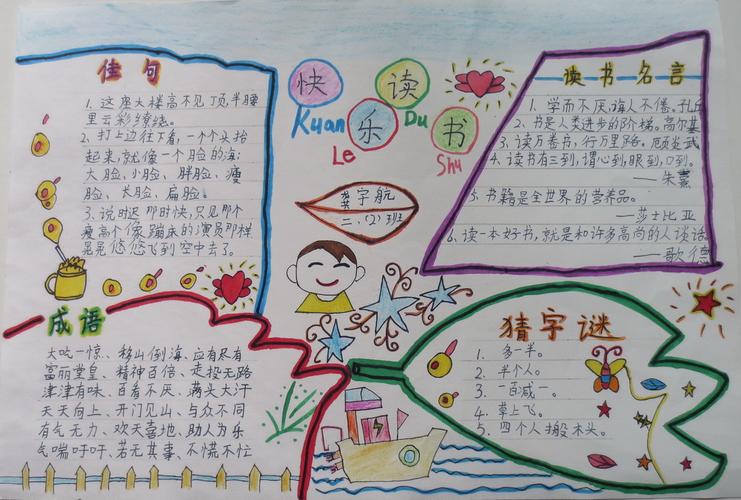 快 读
乐 书
Kuan Du
Le Shu
龚宇航
二、(2)班
佳句
1. 这座大楼高不见顶,半腰
里云彩缭绕。
2. 打上边往下看,一个个头抬
起来,就像一个脸的海:
大脸、小脸、胖脸、瘦
脸、长脸、扁脸。
3. 说时迟那时快,只见那个
瘦高个像蹦床的演员那样
晃晃悠悠飞到空中去了。
读书名言
1. 学而不厌,诲人不倦。孔丘
2. 书是人类进步的阶梯。高尔基
3. 读万卷书,行万里路。顾炎武
4. 读书有三到,谓心到,眼到,口到。
——朱熹
5. 书籍是全世界的营养品。
——莎士比亚
6. 读一本好书,就是和许多高尚的人谈话。
——歌德
成语
大吃一惊、移山倒海、应有尽有
富丽堂皇、精神百倍、走投无路
津津有味、百看不厌、满头大汗
天天向上、开门见山、与众不同
有气无力、欢天喜地、助人为乐
气喘吁吁、若无其事、不慌不忙
猜字谜
1. 多一半。
2. 半个人。
3. 一百减一。
4. 草上飞。
5. 四个人搬木头。